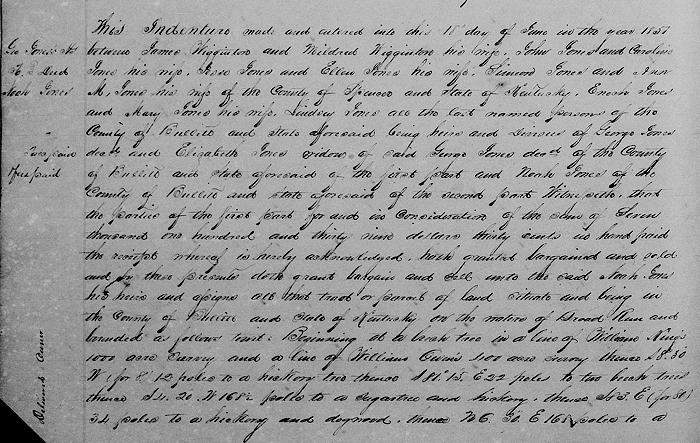 This Indenture made and entered into this 18 day of June in the year 1857
between James Wigginton and Mildred Wigginton his wife, John Jones and Caroline
Jones his wife, Jesse Jones and Ellen Jones his wife, Simeon Jones and Ann
M. Jones his wife of the County of Spencer and State of Kentucky, Enoch Jones
and Mary Jones his wife, Lindsey Jones all the last named persons of the
County of Bullitt and State aforesaid being heirs and Devisees of George Jones
decd and Elizabeth Jones widow of said George Jones decd of the County
of Bullitt and State aforesaid of the first part and Noah Jones of the
County of Bullitt and State aforesaid of the second part Witnesseth, that
the parties of the first part for and in Consideration of the sum of Seven
thousand one hundred and thirty nine dollars thirty cents in hand paid
the receipt whereof is hereby acknowledged, hath granted bargained and sold
and by these presents doth grant bargain and sell unto the said Noah Jones
his heirs and assigns all that tract or parcel of land situate and being in
the County of Bullitt and State of Kentucky on the waters of Broad Run and
bounded as follows towit: Beginning at a beech tree in a line of William Kings
1000 acre survey and a line of William 400 acre survey thence S 8° 30
W (for 8° 12 poles to a hickory tree thence S 81° 15 E 22 poles to two beech trees
thence S 4. 20. W 168½ poles to a sugartree and hickory, thence E (for 80)
34 poles to a hickory and dogwood, thence N 6. 30. E 168 poles to a
Geo Jones Hs
Deed
Noah Jones
Tax paid
Fee paid
Delivered